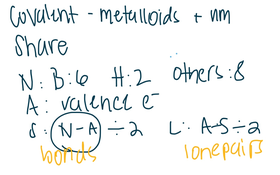 Covalent - metalloids + nm
Share
N: B:6 H:2 others:8
A: valence e⁻
S: N-A ÷2 L: A-S÷2
bonds lone pairs